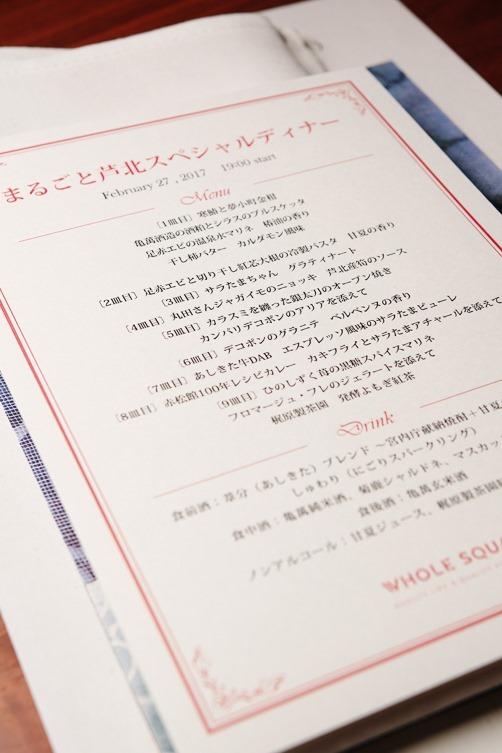 まるごと芦北スペシャルディナー
February 27 , 2017 19:00 start
Menu
〔1皿目〕寒鰆と夢小町金柑
亀萬酒造の酒粕とシラスのブルスケッタ
足赤エビの温泉水マリネ 椿油の香り
干し柿バター カルダモン風味
〔2皿目〕足赤エビと切り干し紅芯大根の冷製パスタ 甘夏の香り
〔3皿目〕サラたまちゃん グラティナート
〔4皿目〕丸田さんジャガイモのニョッキ 芦北産筍のソース
〔5皿目〕カラスミを纏った銀太刀のオーブン焼き
カンパリデコポンのアリアを添えて
〔6皿目〕デコポンのグラニテ ベルベンヌの香り
〔7皿目〕あしきた牛DAB エスプレッソ風味のサラたまピューレ
〔8皿目〕赤松館100年レシピカレー カキフライとサラたまアチャールを添えて
〔9皿目〕ひのしずく苺の黒糖スパイスマリネ
フロマージュ・フレのジェラートを添えて
梶原製茶園 発酵よもぎ紅茶
Drink
食前酒：葦分（あしきた）ブレンド ～宮内庁献納焼酎＋甘夏
しゅわり（にごりスパークリング）
食中酒：亀萬純米酒、菊鹿シャルドネ、マスカッ
食後酒：亀萬玄米酒
ノンアルコール：甘夏ジュース、梶原製茶園
WHOLE SQUA